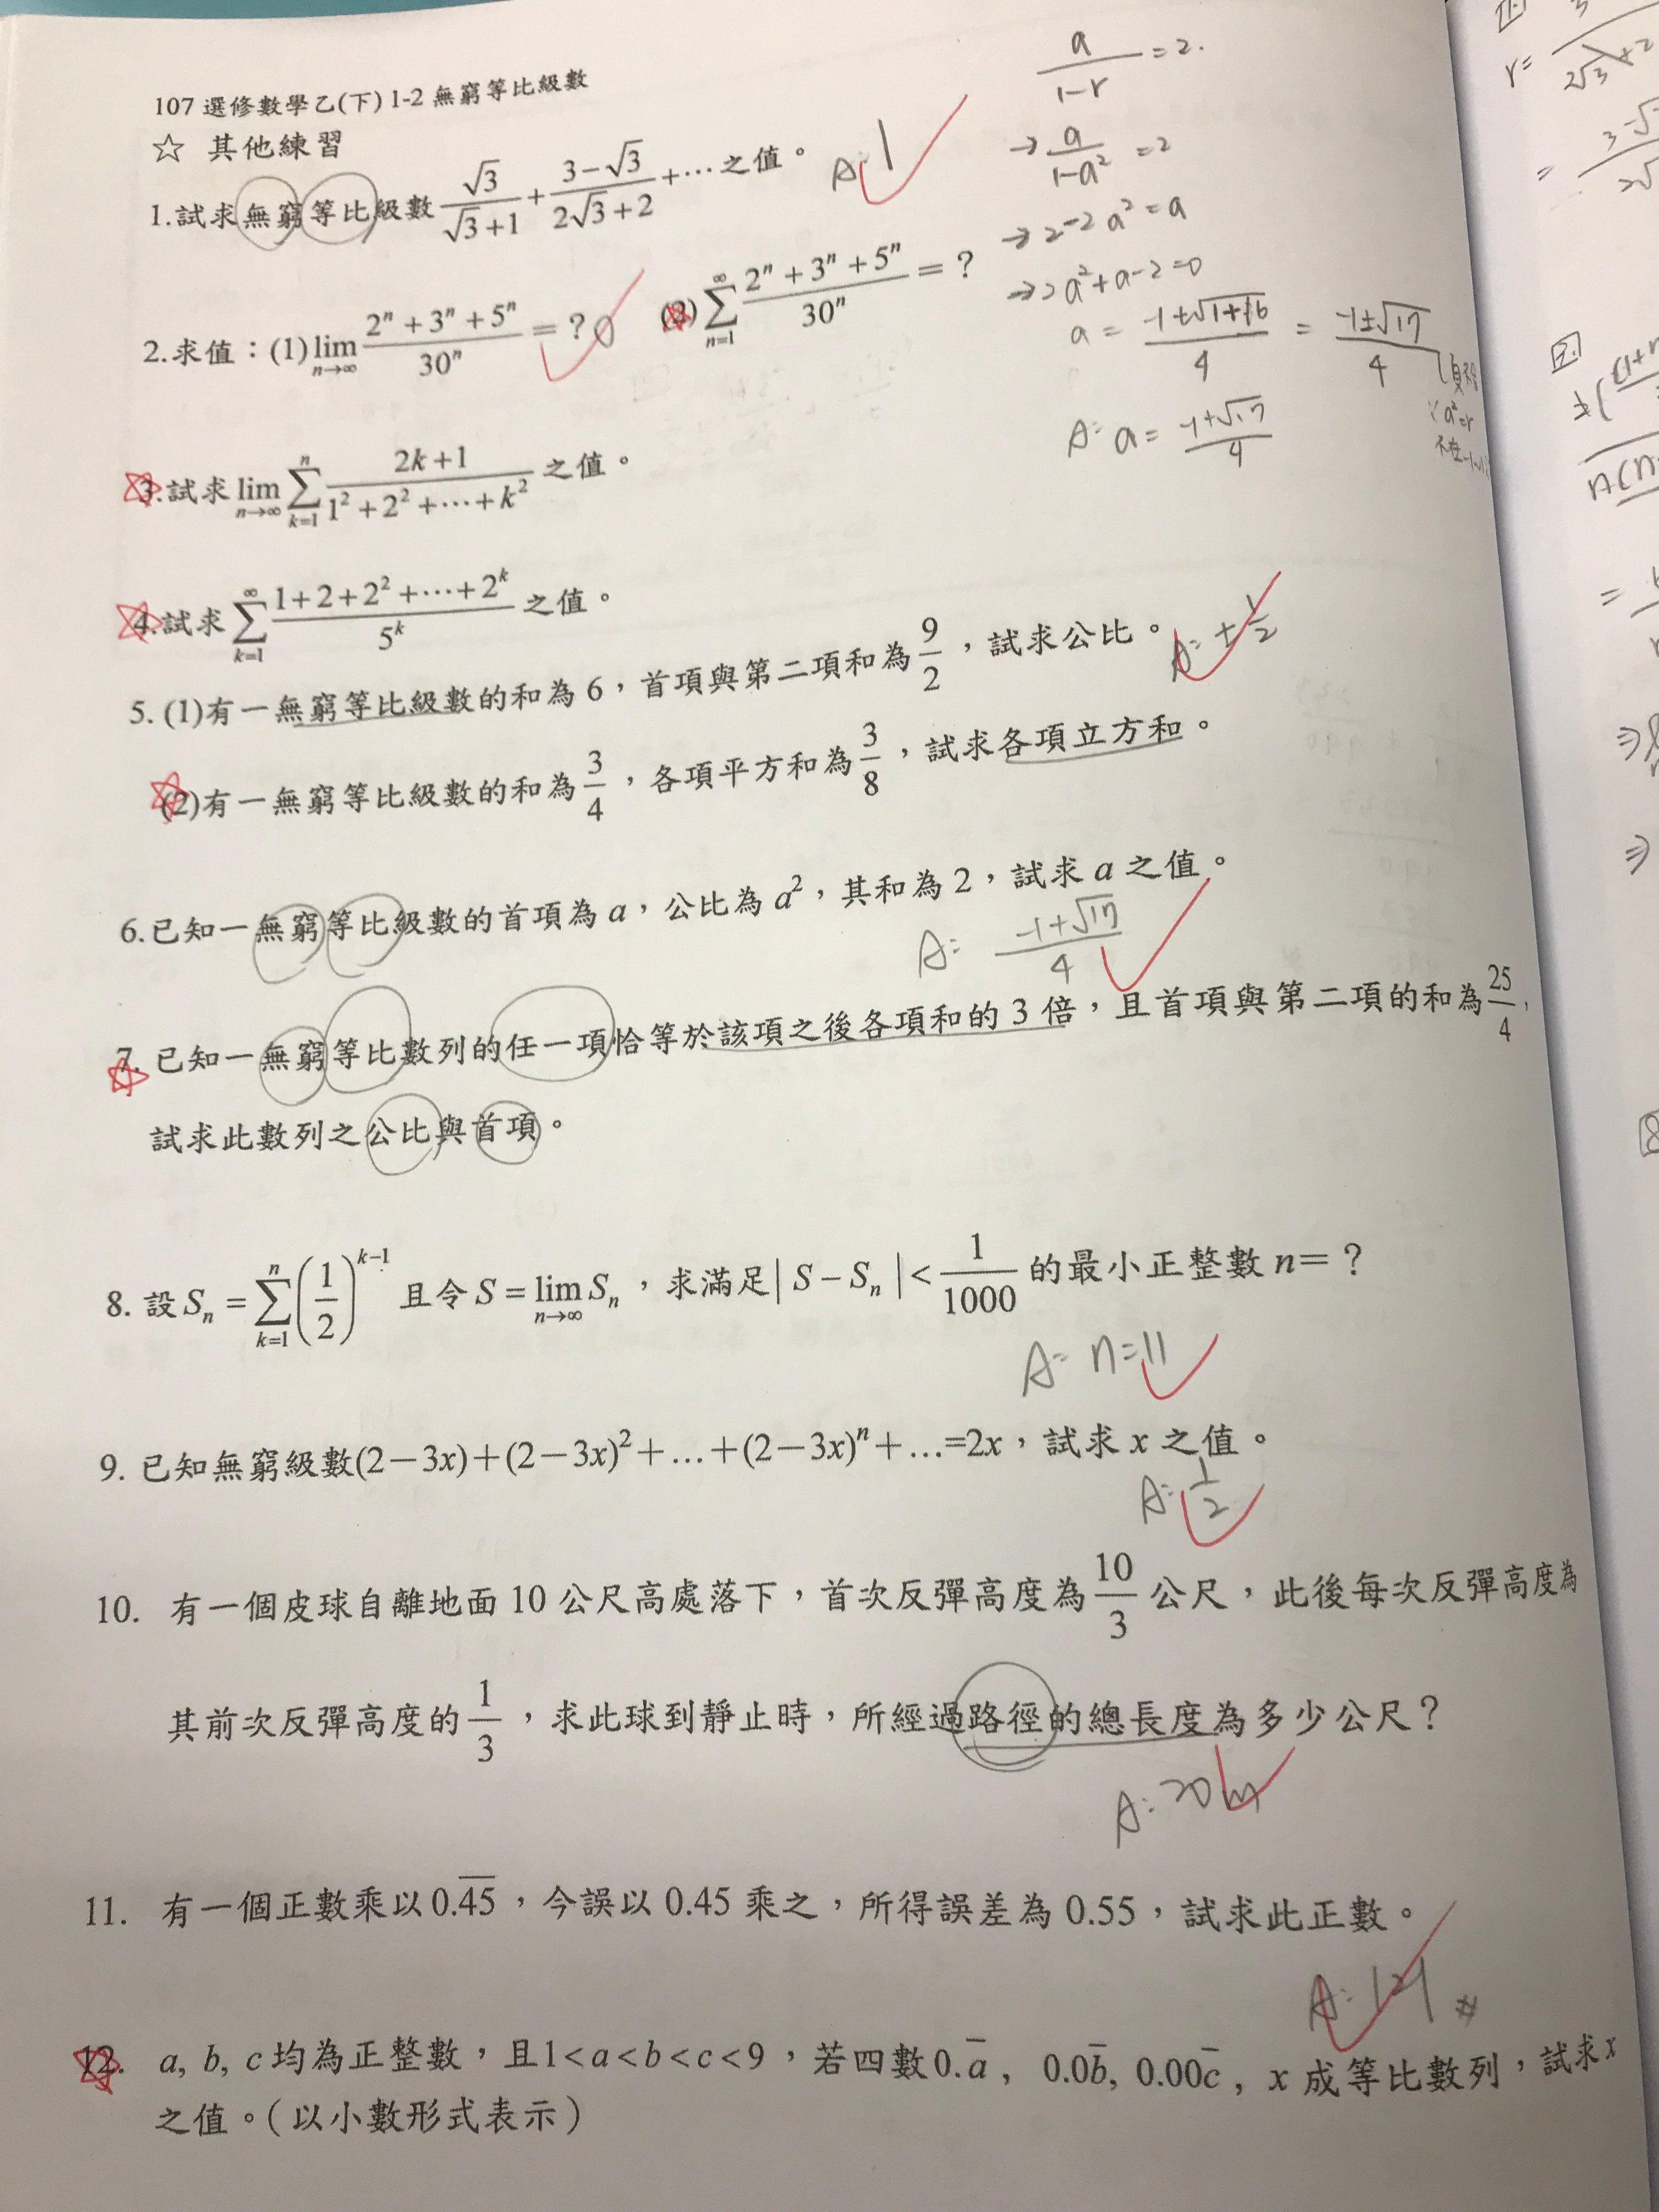 107 選修數學乙(下) 1-2 無窮等比級數
☆ 其他練習
1.試求無窮等比級數 √3/(√3+1) + (3−√3)/(2√3+2) +⋯之值。 A: 1
2.求值：(1) lim n→∞ (2ⁿ+3ⁿ+5ⁿ)/30ⁿ =？0 (2) ∑ n=1 ∞ (2ⁿ+3ⁿ+5ⁿ)/30ⁿ =？
3.試求 lim n→∞ ∑ k=1 n (2k+1)/(1²+2²+⋯+k²) 之值。
4.試求 ∑ k=1 ∞ (1+2+2²+⋯+2ᵏ)/5ᵏ 之值。
5. (1)有一無窮等比級數的和為 6，首項與第二項和為 9/2，試求公比。 A: ±1/2
(2)有一無窮等比級數的和為 3/4，各項平方和為 3/8，試求各項立方和。
6.已知一無窮等比級數的首項為 a，公比為 a²，其和為 2，試求 a 之值。
A: (-1+√17)/4
7. 已知一無窮等比數列的任一項恰等於該項之後各項和的 3 倍，且首項與第二項的和為 25/4，
試求此數列之公比與首項。
8. 設 Sₙ = ∑ k=1 n (1/2)^(k−1) 且令 S = lim n→∞ Sₙ，求滿足| S−Sₙ |< 1/1000 的最小正整數 n=？
A: n=11
9. 已知無窮級數(2−3x)+(2−3x)²+…+(2−3x)ⁿ+…=2x，試求 x 之值。
A: 1/2
10. 有一個皮球自離地面 10 公尺高處落下，首次反彈高度為 10/3 公尺，此後每次反彈高度為
其前次反彈高度的 1/3，求此球到靜止時，所經過路徑的總長度為多少公尺？
A: 20m
11. 有一個正數乘以 0.4̅5̅，今誤以 0.45 乘之，所得誤差為 0.55，試求此正數。
A: 121 #
12. a, b, c 均為正整數，且1<a<b<c<9，若四數 0.a̅， 0.0b̅, 0.00c̅, x 成等比數列，試求 x
之值。(以小數形式表示)
a/(1-r) =2.
→ a/(1-a²) =2
→ 2-2a²=a
→ 2a²+a-2=0
a = (-1±√(1+16))/4 = (-1±√17)/4
∵ a²=r
A: a= (-1+√17)/4
r=